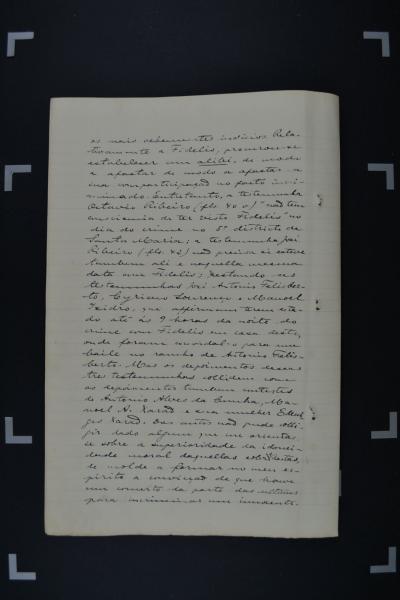 os mais vehementes indicios. Rela-
tivamente a Fidelis, procurou-se
estabelecer um alibi, de modo
a afastar de modo a afastar a
sua comparticipação no facto incri-
minado. Entretanto, a testemunha
Octavio Ribeiro (fls. 40 v) "não tem
consciencia de ter visto Fidelis" no
dia do crime no 5º districto de
Santa Maria; a testemunha José
Ribeiro (fls. 42) não precisa si esteve
tambem ali e naquella mesma
data com Fidelis; restando as
testemunhas José Antonio Felisber-
to, Cypriano Lourenço e Manoel
Izidro, que affirmam terem esta-
do até ás 9 horas da noite do
crime com Fidelis em casa deste,
onde foram convidal-o para um
baile no rancho de Antonio Felis-
berto. Mas os depoimentos dessas
tres testemunhas collidem com
os depoimentos tambem contestes
de Antonio Alves da Cunha, Ma-
noel A. e sua mulher
Dos autos não pude colli-
gir dado algum que me orientas-
se sobre a superioridade da idonei-
dade moral daquellas
de molde a formar no meu es-
pirito a convicção de que houve
um concerto da parte das ultimas
para incriminar um innocente.